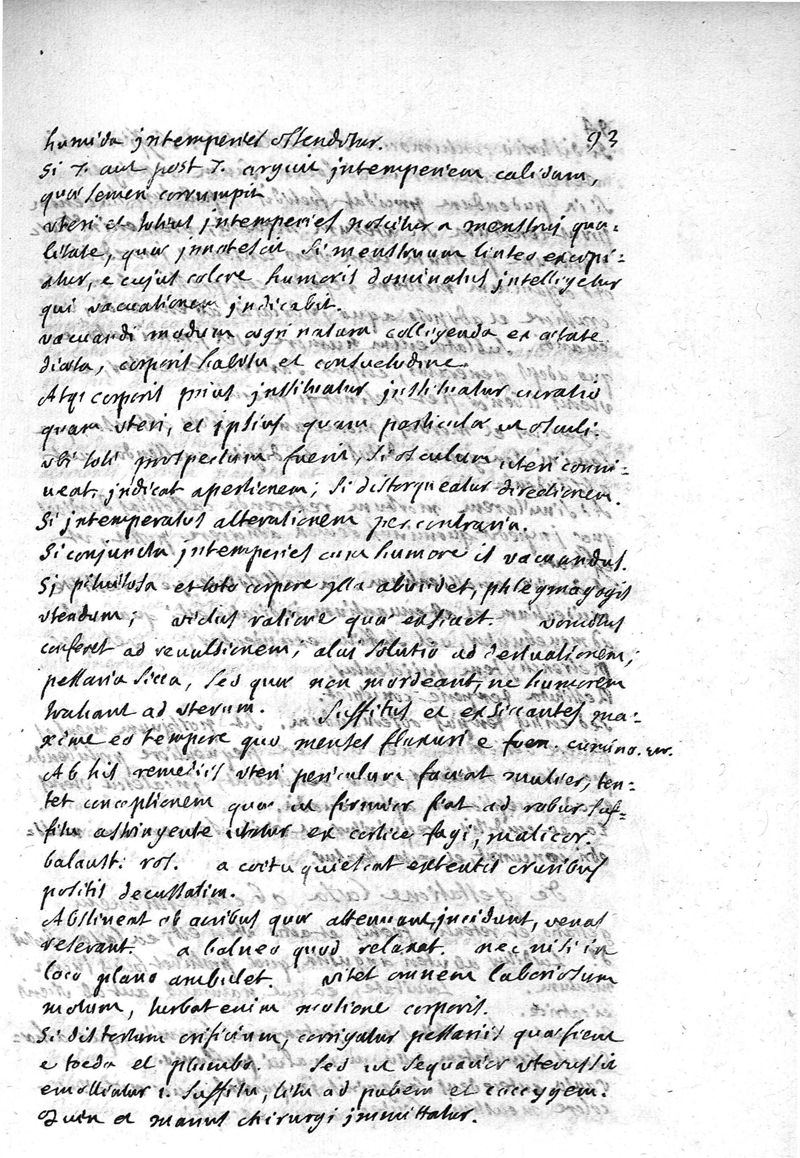 93
humida intemperies ostenditur.
Si aut post arguit intemperiem calidam,
quae semen corrumpit
uteri et totius intemperies noscitur a menstruis qua-
litate, quae innotescit si menstruum linteo excipi-
atur, e cujus colore humoris dominatus intelligetur
qui vacuationem indicabit.
vacuandi modum aegri natura colligenda ex aetate
diaeta, corporis habitu et consuetudine.
Atqi corporis prius instituatur instituatur curatio
quam uteri, et ipsius quam particulae ut osculi.
ubi toti prospectum fuerit, si osculum uteri conni-
veat, indicat apertionem; si distorqueatur directionem.
Si intemperatus alterationem per contraria.
Si conjuncta intemperies cum humore is vacuandus.
Si pituitosa et toto corpore illa abundet, phlegmagogis
utendum; victus ratione quae exsiccet. vomitus
conferet ad revulsionem; alvi solutio ad derivationem;
pessaria sicca, sed quae non mordeant, ne humorem
trahant ad uterum. Suffitus et exsiccantes ma-
xime eo tempore quo menses fluxuri e foen. cumino.
Ab his remediis uteri periculum faciat mulier, ten-
tet conceptionem quae ut firmior fiat ad robur suf-
fitu astringente utatur ex cortice fagi, malicor.
balaust. ros. a coitu quiescat extentis cruribus
positis decussatim.
Abstineat ab acribus quae attenuant, incidunt, venas
reserant. a balneo quod relaxat. nec nisi in
loco plano ambulet. vitet omnem laboriosum
motum, turbat enim motione corporis.
Si distortum orificium, corrigatur pessariis quae fient
e toeda et plumbo. Sed ut sequatior uterus sit
emolliatur suffitu, litu ad pubem et coccygem.
Quin et manus chirurgi immittatur.